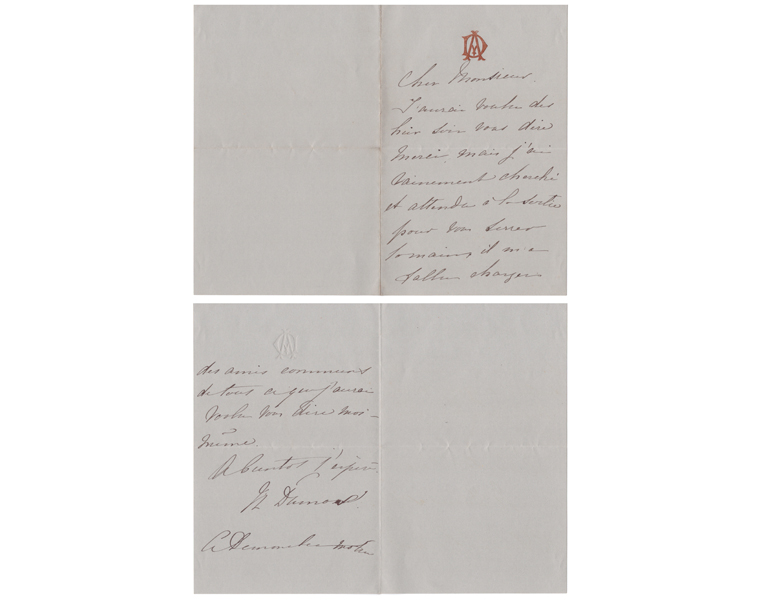 Cher Monsieur,
J'aurais voulu dès
hier soir vous dire
merci, mais j'ai
vainement cherché
et attendu à la sortie
pour vous serrer
la main, il m'a
fallu charger
des amis communs
de tout ce que j'aurai
voulu vous dire moi-
même.
A bientôt j'espère.
Dumons
matin